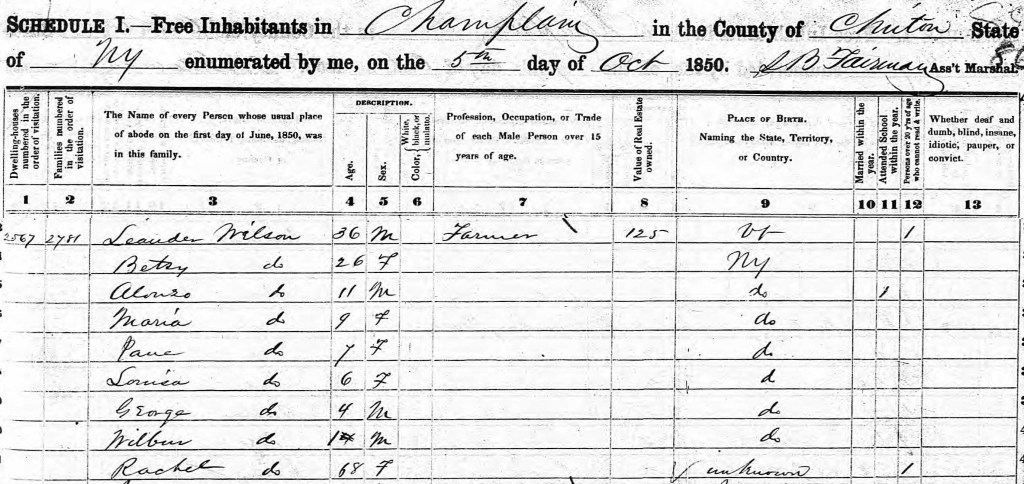 SCHEDULE I.—Free Inhabitants in Champlain in the County of Clinton State
of NY enumerated by me, on the 5th day of Oct 1850. S B Fairman Ass't Marshal.
Dwelling-houses numbered in the order of visitation.
Families numbered in the order of visitation.
The Name of every Person whose usual place of abode on the first day of June, 1850, was in this family.
DESCRIPTION.
Age.
Sex.
Color, { White, black, or mulatto.
Profession, Occupation, or Trade of each Male Person over 15 years of age.
Value of Real Estate owned.
PLACE OF BIRTH. Naming the State, Territory, or Country.
Married within the year.
Attended School within the year.
Persons over 20 y'rs of age who cannot read & write.
Whether deaf and dumb, blind, insane, idiotic, pauper, or convict.
1 2 3 4 5 6 7 8 9 10 11 12 13
2567 2781 Leander Wilson 36 M Farmer 125 Vt 1
Betsy do 26 F NY
Alonzo do 11 M do 1
Maria do 9 F do
do 7 F do
Louisa do 6 F d
George do 4 M do
Wilbur do M do
Rachel do 68 F unknown 1